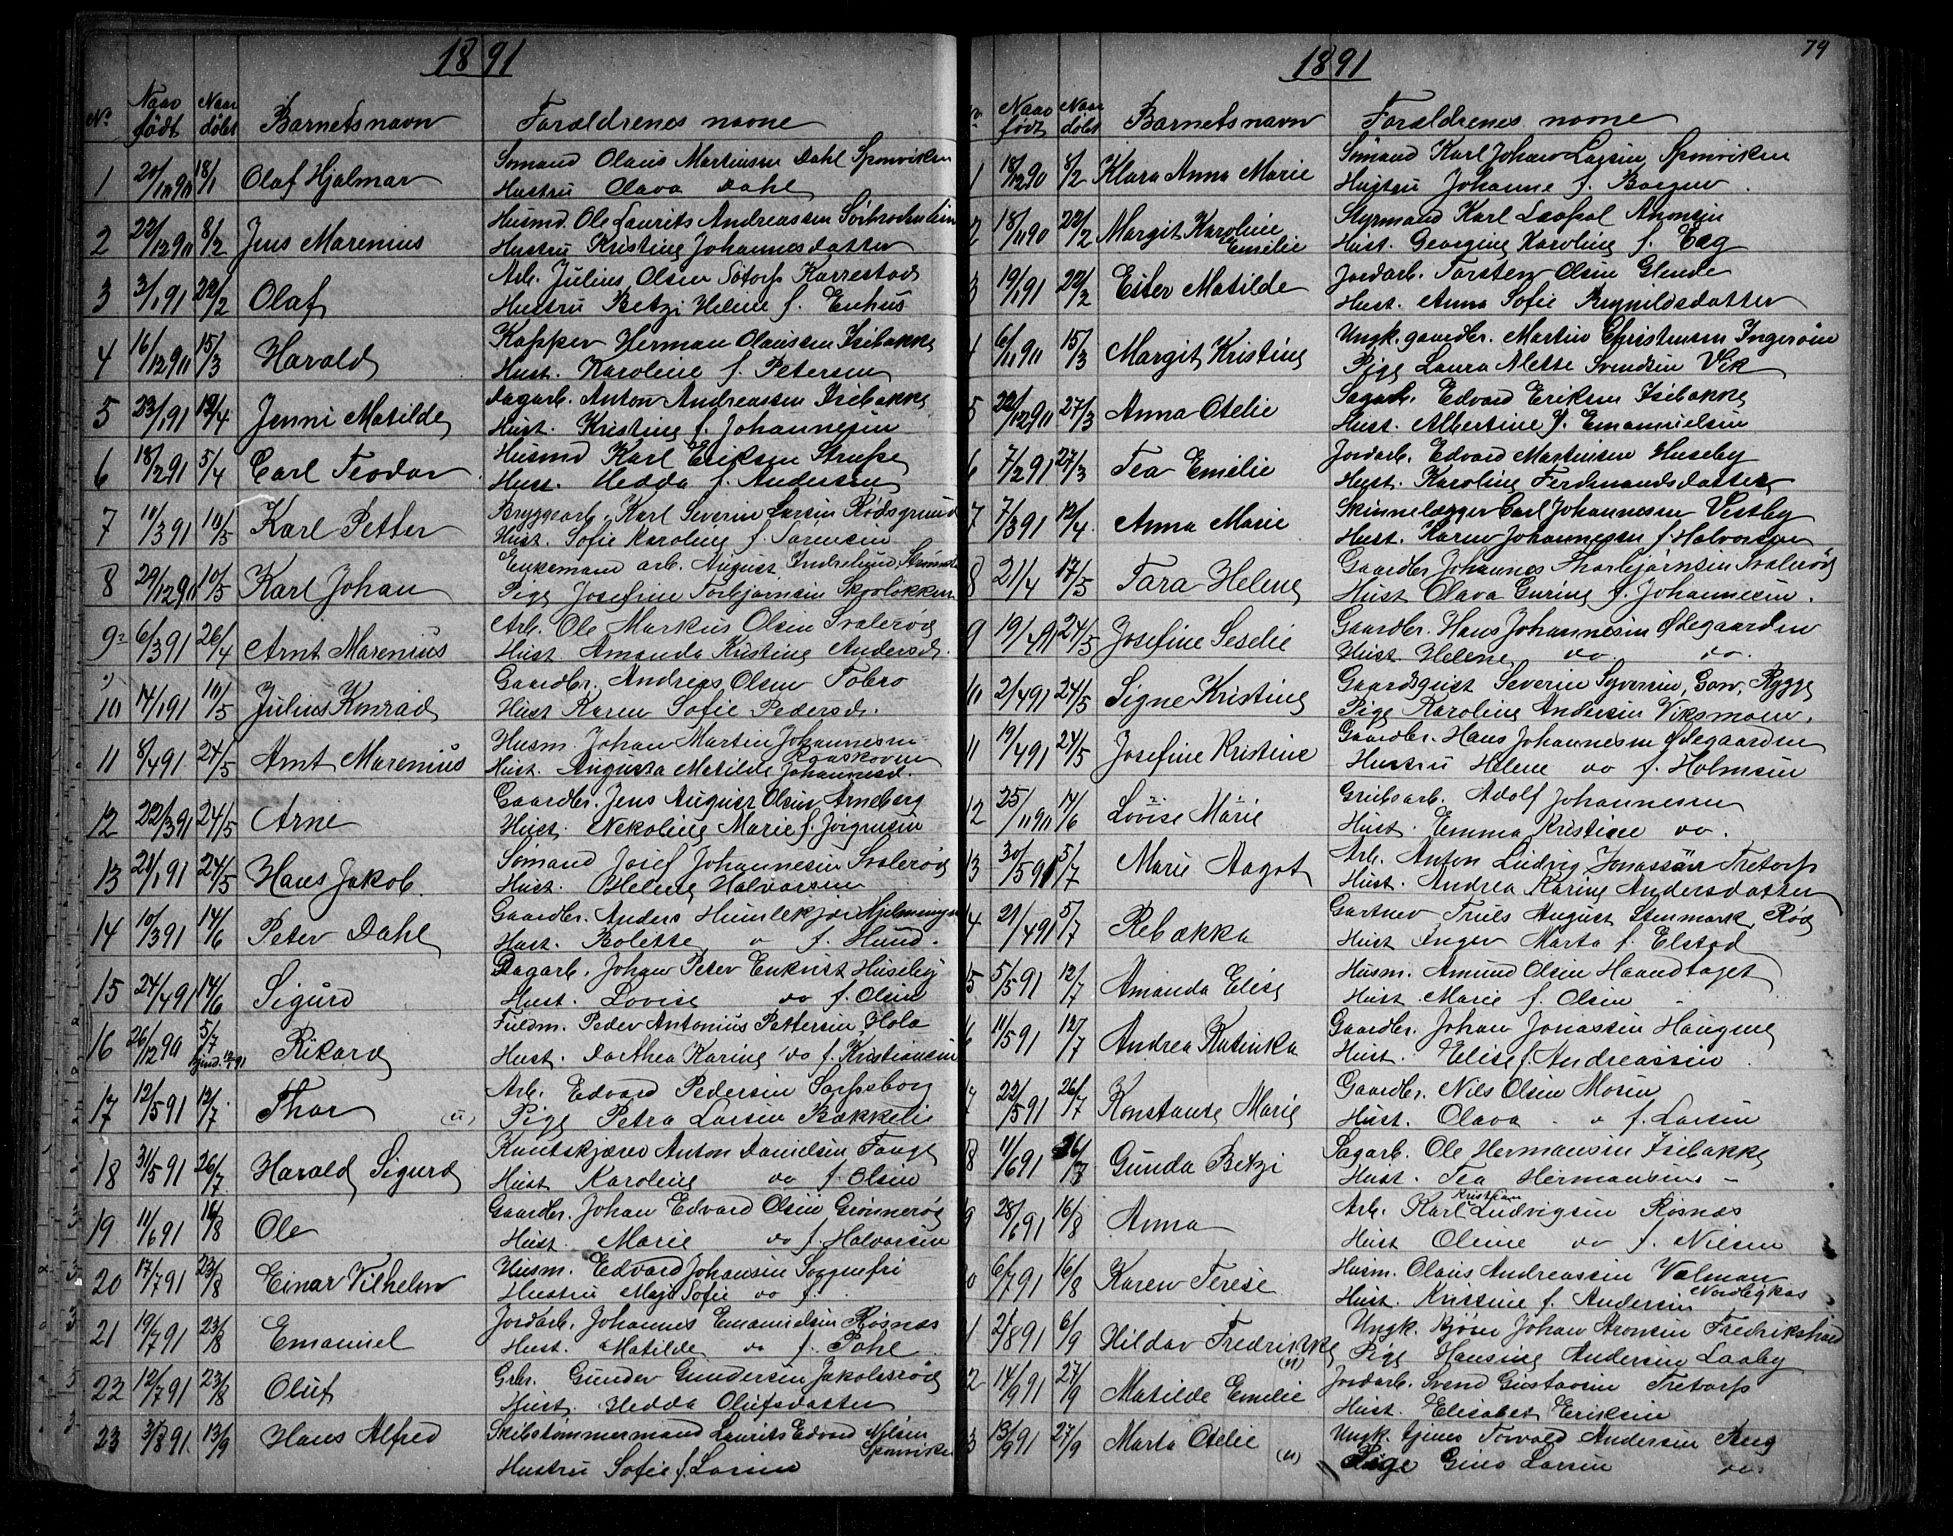 1891
No Naar født Naar døbt Barnets navn Forældrenes navne
1 18/1 Olaf Hjalmar Sømand Olaus Martinsen Dahl Sponviken
Hustru Olava Dahl
2 22/12 90 8/2 Jens Marenius Husmd. Ole Laurits Andreassen
Hustru Kristine Johannesdatter
3 3/1 91 22/2 Olaf Arb. Julius Olsen Torp Karrestad
Hustru Betzi Helene f. Enhus
4 16/12 90 15/3 Harald Kopper Herman Olaussen Isebakke
Hust. Karoline f. Petersen
5 23/1 91 12/4 Jenni Matilde Dagarb. Anton Andreassen Isebakke
Hust. Kristine f. Johannesen
6 18/2 91 5/4 Carl Teodor Husmd Karl Eriksen Strupe
Hust. Hedda f. Andersen
7 11/3 91 10/5 Karl Petter Bryggearb. Karl Severin Larsen Rødsgrund
Hust. Sofie Karoline f. Sørensen
8 29/12 90 10/5 Karl Johan Enkemand arb. August Indrelund
Pige Josefine Torbjørnsen Skovløkken
9 6/3 91 26/4 Arnt Marenius Arb. Ole Markus Olsen Svalerød
Hust. Amanda Kristine Andersd.
10 14/1 91 10/5 Julius Konrad Gaardbr. Andreas Olsen Tobro
Hust Karen Sofie Pedersd.
11 8/4 91 24/5 Arnt Marenius Husm. Johan Martin Johannesen
Hust. Augusta Matilde Johannesd.
12 22/3 91 24/5 Arne Gaardbr. Jens August Olsen Arneberg
Hust. Nekoline Marie f. Jørgensen
13 21/1 91 24/5 Hans Jakob Sømand Josef Johannesen Svalerød
Hust. Helene Halvorsen
14 10/3 91 14/6 Peter Dahl Gaardbr. Anders Humlekjær
Hust. Bolette do f. Hund.
15 24/4 91 14/6 Sigurd Dagarb. Johan Peter Enkvist Huseby
Hust. Lovise do f. Olsen
16 26/12 90 5/7 Rikard Fuldm. Peder Antonius Pettersen Hola
Hust. Dorthea Karine do f. Kristiansen
17 12/5 91 12/7 Thor (u) Arb. Edvard Pedersen Sarpsborg
Pige Petra Larsen Bakkeli
18 31/5 91 26/7 Harald Sigurd Anton Danielsen Tange
Hust Karoline do f. Olsen
19 11/6 91 16/8 Ole Gaardbr. Johan Edvard Olsen Grønnerød
Hust. Marie do f. Halvorsen
20 17/7 91 23/8 Einar Vilhelm Husm. Edvard Johansen Sorgenfri
Hustru Maja Sofie do f.
21 19/7 91 23/8 Emanuel Jordarb. Johannes Emanuelsen Røsnæs
Hust. Matilde do f. Pohl
22 12/7 91 23/8 Oluf Gbr. Gunder Gundersen Jakobsrød
Hust. Hedda Olufsdatter
23 3/8 91 13/9 Hans Alfred Skibstømmermand Laurits Edvard Nilsen Sponviken
Hustru Sofie f. Larsen
79
1891
Naar født Naar døbt Barnets navn Forældrenes navne
1 18/12 90 8/2 Klara Anna Marie Sømand Karl Johan Larsen, Sponviken
Hustru Johanne f. Borgen
2 18/11 90 22/2 Margit Karoline Emilie Styrmand Karl Leopol Aronsen
Hust. Georgine Karoline f. Eeg
3 19/1 91 22/2 Ester Matilde Jordarb. Torsten Olsen Glende
Hust. Anna Sofie Brynildsdatter
4 6/11 90 15/3 Margit Kristine Ungk. gaardbr. Martin Christensen Ingerøen
Pige Laura Mette Svendsen Vik
5 22/12 90 27/3 Anna Otelie Sagarb. Edvard Eriksen Isebakke
Hust. Albertine f. Emanuelsen
6 7/2 91 27/3 Tea Emilie Jordarb. Edvard Martinsen Huseby
Hust. Karoline Ferdinandsdatter
7 7/3 91 12/4 Anna Marie Skinnelægger Carl Johannesen Vestby
Hust. Karen Johannesen f. Halvorsen
8 21/4 17/5 Tara Helene Gaardbr Johannes Thorbjørnsen Svalerød
Hust Olava Gurine f. Johannesen.
9 19/4 91 24/5 Josefine Seselie Gaardbr. Hans Johannesen Ødegaarden
Hust. Helene do do.
10 2/4 91 24/5 Signe Kristine Severin Syversen, Rygge
Pige Karoline Andersen Viksmoen.
11 19/4 91 24/5 Josefine Kristine Gaardbr. Hans Johannesen Ødegaarden
Hustru Helene do f. Holmsen
12 25/11 90 14/6 Lovise Marie Grubearb. Adolf Johannesen
Hust. Emma Kristine do.
13 30/5 91 5/7 Marie Aagot Arb. Anton Ludvig Jonassen Tretorp
Hust. Andrea Karine Andersdatter
14 21/4 91 5/7 Rebækka Gartner Truls August Stenmark, Rød
Hust Inger Marta f. Elstad
15 5/5 91 12/7 Amanda Elise Husm. Amund Olsen Haandtaget
Hust. Marie f. Olsen
11/5 91 12/7 Andrea Katinka Gaardbr. Johan Jonassen Haugene
Hust. Elise f. Andreassen
22/5 91 26/7 Konstanse Marie Gaardbr. Nils Olsen Mosen
Hust. Olava do f. Larsen
8 11/6 91 26/7 Gunda Betzi Sagarb. Ole Hermansen Isebakke
Hust. Tea Hermansen
9 28/6 91 16/8 Anna Arb. Karl Kristian Ludvigsen Røsnæs
Hust Oline do f. Nilsen
6/7 91 16/8 Karen Terese Husm. Olaus Andreassen Volman
Hust. Kristine f. Andersen
2/8 91 6/9 Hildar Fredrikke (u) Ungk. Johan Aronsen Fredrikshald
Pige Hansine Andersen Laaby
2 14/9 91 27/9 Matilde Emilie Jordarb. Svend Gustavsen Tretorp
Hust. Elisabet Eriksen
3 13/9 91 27/9 Marta Otelie (u) Ungk. tjener Torvald Andersen Berg
Pige Gina Larsen do.